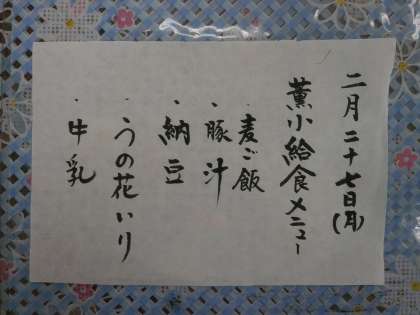 二月二十七日(月)
薫小給食メニュー
・麦ご飯
・豚汁
・納豆
・うの花いり
・牛乳